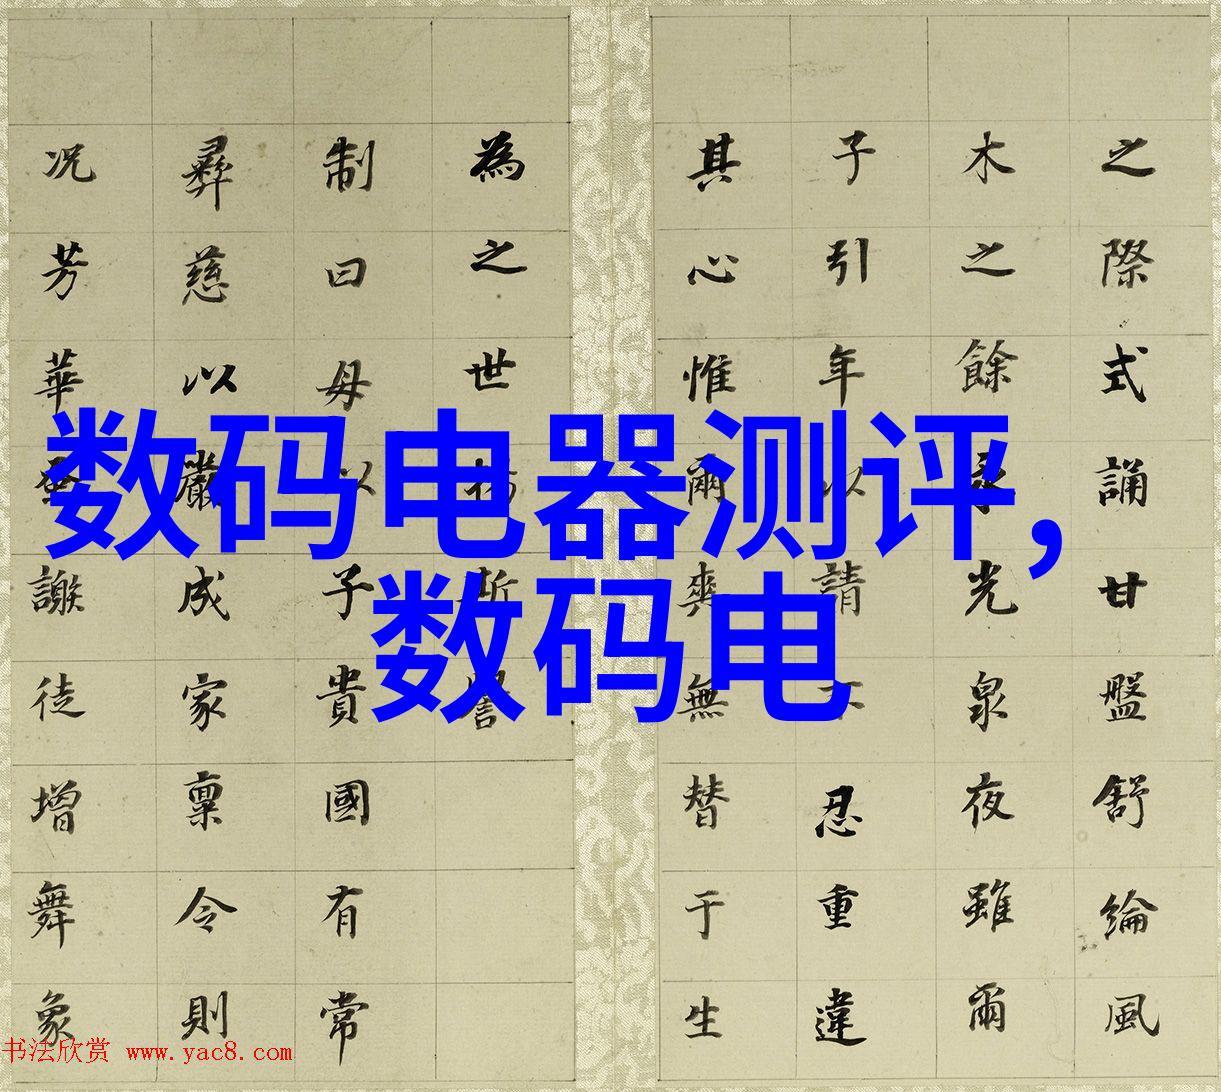 数码电器测评,
数码电
之際式誦甘盤舒綸風
木之餘光泉夜雖爾
子引年以請不忍重違
其心惟爾爽無替于生
為之世
制曰母以子貴國有常
彝慈以嚴成家稟令則
况芳華蚤謝徒增舞象
书法欣赏 www.yac8.com